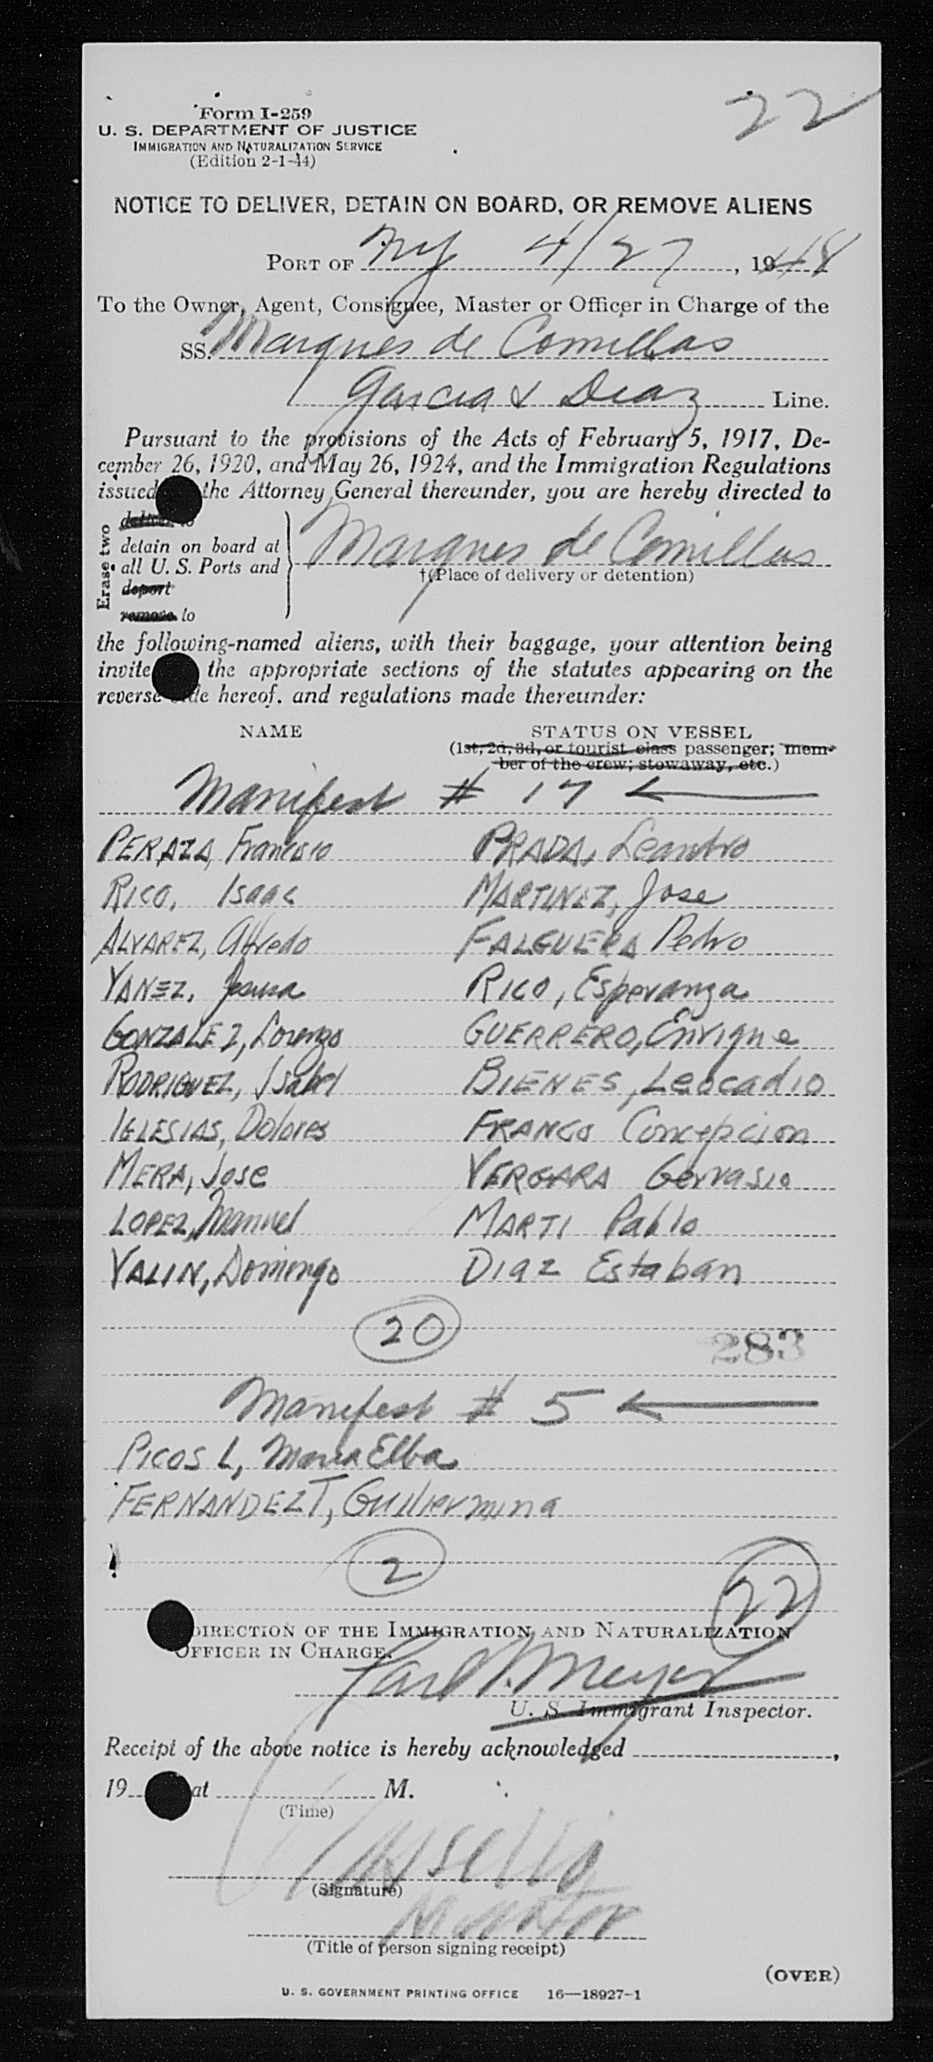 22
Form I-259
U. S. DEPARTMENT OF JUSTICE
IMMIGRATION AND NATURALIZATION SERVICE
(Edition 2-1-44)
NOTICE TO DELIVER, DETAIN ON BOARD, OR REMOVE ALIENS
PORT OF NY 4/27, 1948
To the Owner, Agent, Consignee, Master or Officer in Charge of the
SS. Marques de Comillas
Garcia & Diaz Line.
Pursuant to the provisions of the Acts of February 5, 1917, De-
cember 26, 1920, and May 26, 1924, and the Immigration Regulations
issued the Attorney General thereunder, you are hereby directed to
Erase two
deliver to
detain on board at
all U. S. Ports and
deport
remove to
Marques de Comillas
†(Place of delivery or detention)
the following-named aliens, with their baggage, your attention being
invite the appropriate sections of the statutes appearing on the
reverse side hereof, and regulations made thereunder:
NAME STATUS ON VESSEL
(1st, 2d, 3d, or tourist class passenger; mem-
ber of the crew; stowaway, etc.)
Manifest # 17 ←
PERAZA, Francisco PRADA, Leandro
RICO, Isaac MARTINEZ, Jose
ALVAREZ, Alfredo FALGUERA Pedro
YANEZ, Jesusa RICO, Esperanza
GONZALEZ, Lorenzo GUERRERO, Enrique
RODRIGUEZ, Isabel BIENES, Leocadio
IGLESIAS, Dolores FRANCO Concepcion
MERA, Jose VERGARA Gervasio
LOPEZ, Manuel MARTI Pablo
VALIN, Domingo DIAZ Estaban
20
283
Manifest # 5 ←
PICOS L, Maria Elba
FERNANDEZ T, Guillermina
2
22
DIRECTION OF THE IMMIGRATION AND NATURALIZATION
OFFICER IN CHARGE.
Meyer
U. S. Immigrant Inspector.
Receipt of the above notice is hereby acknowledged ,
19 at M.
(Time)
(Signature)
(Title of person signing receipt)
(OVER)
U. S. GOVERNMENT PRINTING OFFICE 16—18927-1